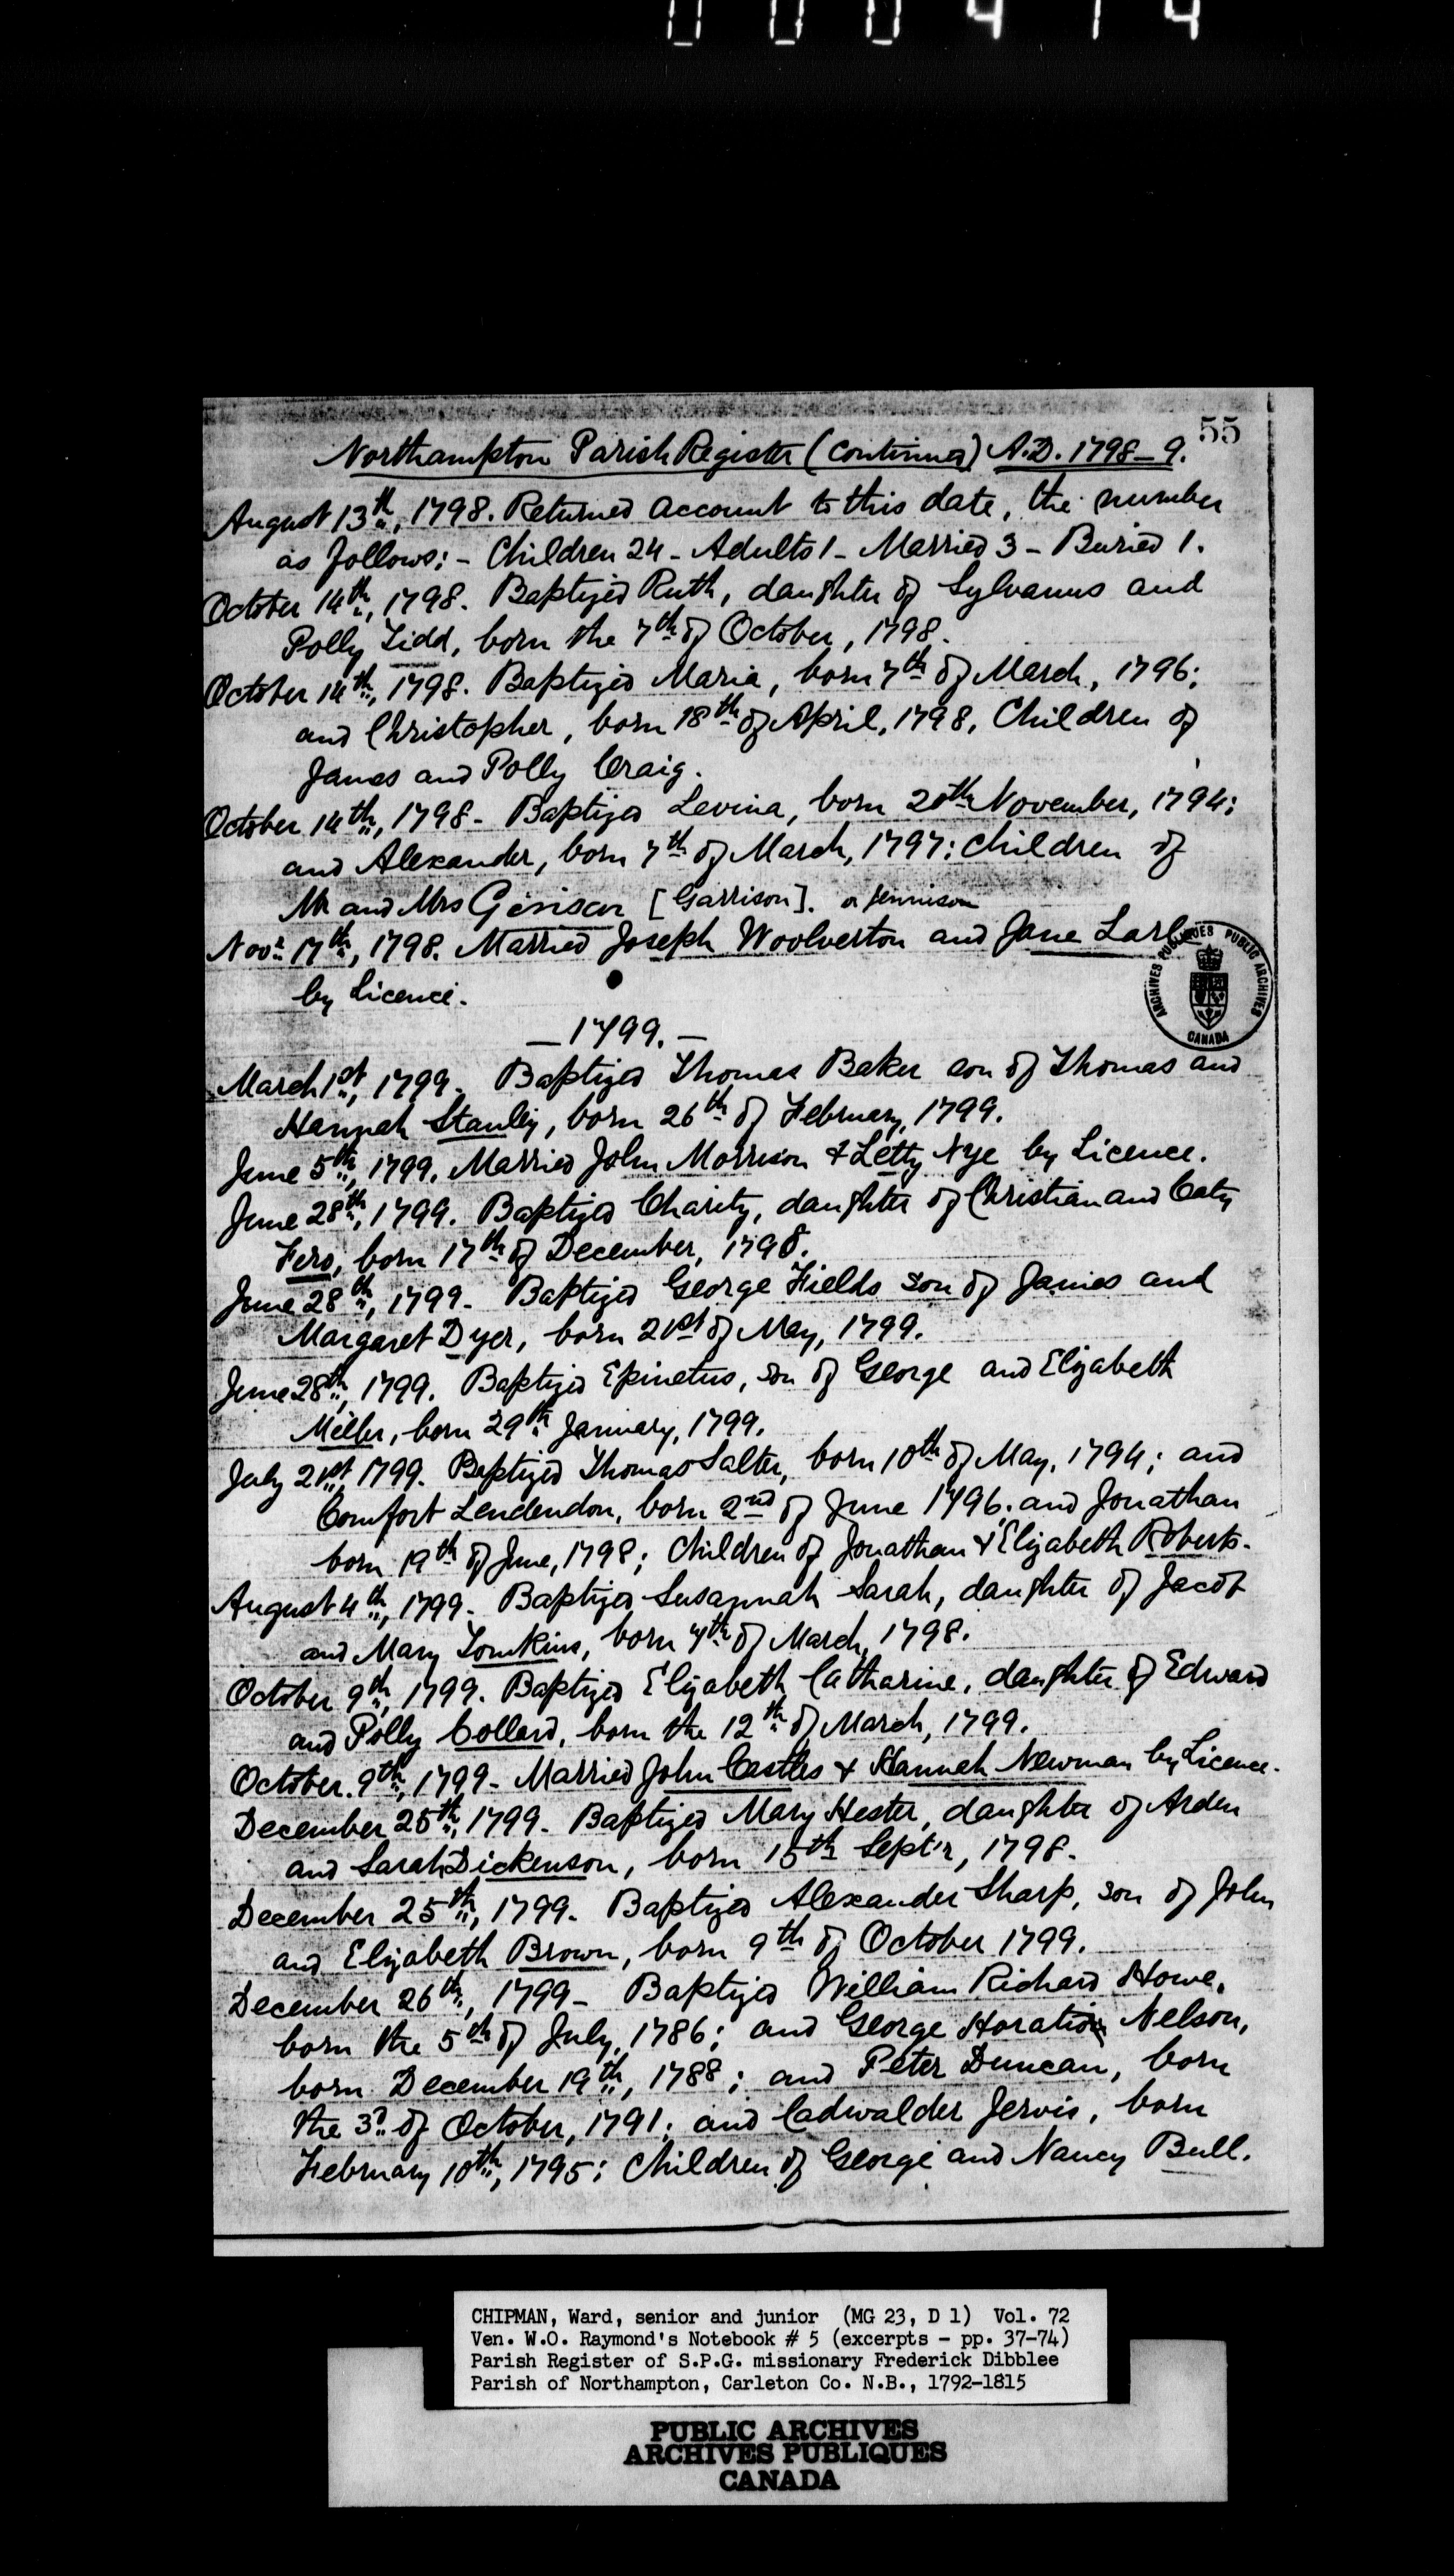 000414
55
Northampton Parish Register (Continued) A.D. 1798-9.
August 13th, 1798. Returned account to this date, the number
as follows:- Children 24 - Adults 1 - Married 3 - Buried 1.
October 14th, 1798. Baptized Ruth, daughter of Sylvanus and
Polly Tidd, born the 7th of October, 1798.
October 14th, 1798. Baptized Maria, born 7th of March, 1796;
and Christopher, born 18th of April, 1798, Children of
James and Polly Craig.
October 14th, 1798 - Baptized Levina, born 20th November, 1794;
and Alexander, born 7th of March, 1797; children of
Mr and Mrs [Garrison]. or Jennison
Novr 17th, 1798. Married Joseph Woolverton and Jane
by Licence.
ARCHIVES PUBLIQUES PUBLIC ARCHIVES
CANADA
- 1799. -
March 1st, 1799. Baptized Thomas Baker son of Thomas and
Hannah Stanley, born 26th of February, 1799.
June 5th, 1799. Married John Morrison & Letty Nye by Licence.
June 28th, 1799. Baptized Charity, daughter of Christian and Caty
Fero, born 17th of December, 1798.
June 28th, 1799 - Baptized George Fields son of James and
Margaret Dyer, born 21st of May, 1799.
June 28th, 1799. Baptized Epinetus, son of George and Elizabeth
Miller, born 29th January, 1799.
July 21st, 1799. Baptized Thomas Salter, born 10th of May, 1794; and
Comfort Lendendon, born 2nd of June 1796. and Jonathan
born 19th of June, 1798; Children of Jonathan & Elizabeth Roberts.
August 4th, 1799 - Baptized Susannah Sarah, daughter of Jacob
and Mary Tomkins, born 7th of March, 1798.
October 9th, 1799. Baptized Elizabeth Catharine, daughter of Edward
and Polly Collard, born the 12th of March, 1799.
October 9th, 1799 - Married John Castles & Hannah Newman by Licence.
December 25th, 1799 - Baptized Mary Hester, daughter of Arden
and Sarah Dickenson, born 15th Sept'r, 1798.
December 25th, 1799 - Baptized Alexander Sharp, son of John
and Elizabeth Brown, born 9th of October 1799.
December 26th, 1799 - Baptized William Richard Howe,
born the 5th of July, 1786; and George Horatio Nelson,
born December 19th, 1788; and Peter Duncan, born
the 3d of October, 1791; and Cadwalder Jervis, born
February 10th, 1795; Children of George and Nancy Bull.
CHIPMAN, Ward, senior and junior (MG 23, D 1) Vol. 72
Ven. W.O. Raymond's Notebook # 5 (excerpts - pp. 37-74)
Parish Register of S.P.G. missionary Frederick Dibblee
Parish of Northampton, Carleton Co. N.B., 1792-1815
PUBLIC ARCHIVES
ARCHIVES PUBLIQUES
CANADA